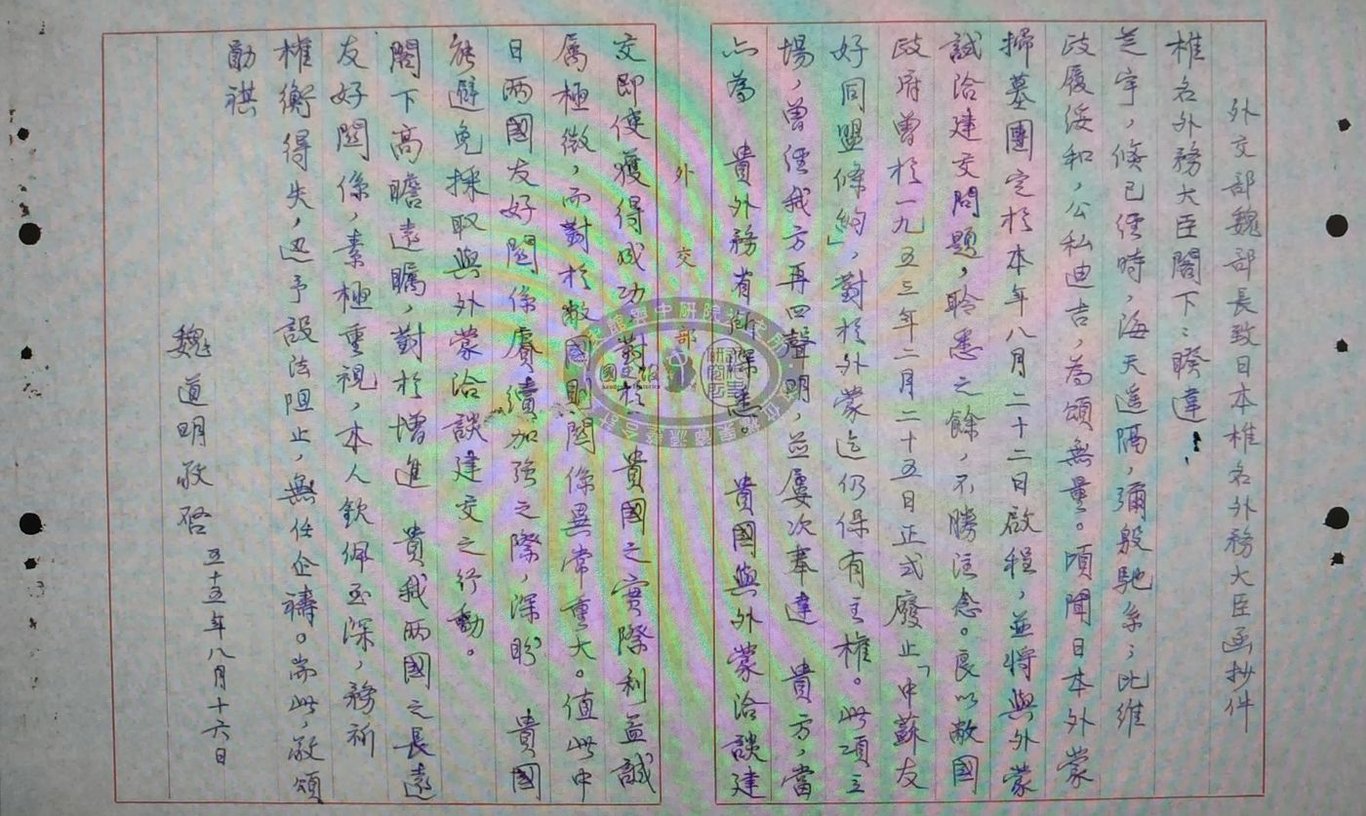 外交部魏部長致日本椎名外務大臣函抄件
椎名外務大臣閣下：睽違
芝宇，倏已經時，海天遥隔，彌殷馳系；比維
政履綏和，公私迪吉，為頌無量。頃聞日本外蒙
掃墓團定於本年八月二十二日啟程，並將與外蒙
試洽建交問題，聆悉之餘，不勝注念。良以敝國
政府曾於一九五三年二月二十五日正式廢止「中蘇友
好同盟條約」，對於外蒙迄仍保有主權。此項立
場，曾經我方再四聲明，並屢次奉達　貴方，當
亦為　貴外務省所深悉。　貴國與外蒙洽談建
外交部
交即使獲得成功對於　貴國之實際利益誠
屬極微，而對於敝國則關係異常重大。值此中
日兩國友好關係賡續加強之際，深盼　貴國
能避免採取與外蒙洽談建交之行動。
閣下高瞻遠矚，對於增進　貴我兩國之長遠
友好關係，素極重視，本人欽佩至深，務祈
權衡得失，迅予設法阻止，無任企禱。耑此，敬頌
勛祺
魏道明敬啓　五十五年八月十六日